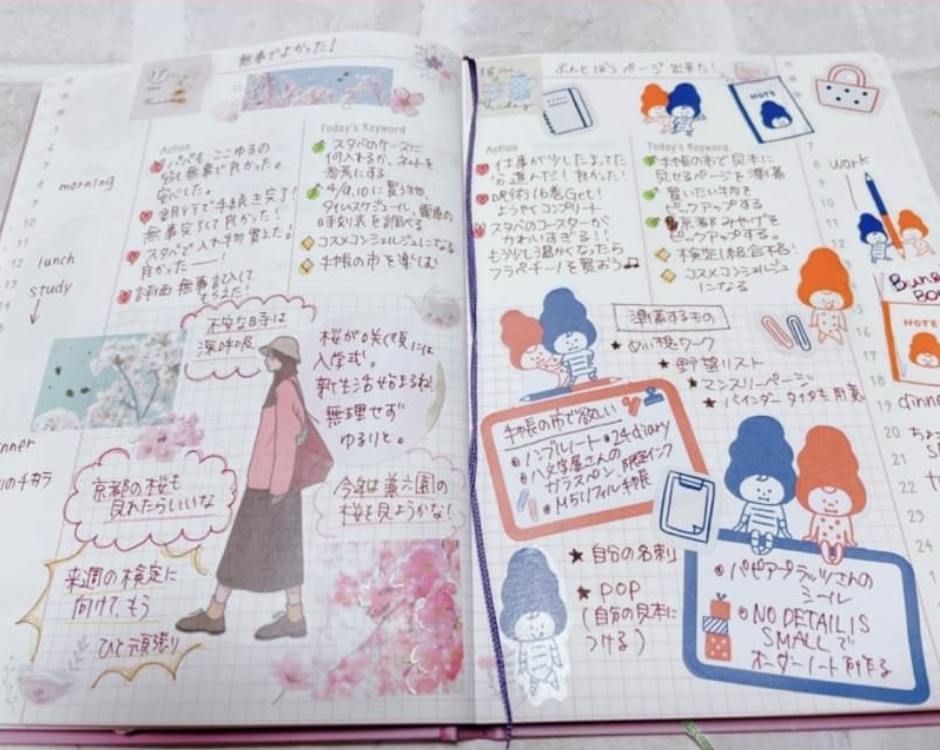 無事でよかった!
5
6
7
8
9
10
11
12
morning
lunch
study
14
Action
無事で良かった。
安心した。
銀行で手続き完了!
無事完了して良かった!
スタバで入れ物買えた!
良かったーー!
評価無事記入して
もらえた!
Today's Keyword
スタバのケースに
何入れるか、ネットを
参考にする
4/9,10に買う物、
タイムスケジュール、電車の
時刻表を調べる
コスメコンシェルジュになる
手帳の市を楽しむ
不安な日は
深呼吸
桜が咲く頃には
入学式。
新生活始まるね!
無理せず
ゆるりと。
京都の桜も
見れたらいいな
今年は兼六園の
桜を見ようかな!
来週の検定に
向けて、もう
ひと頑張り
のチカラ
ぶんとぼうページ出来た!
Action
仕事が少したまってた
分進んだ!良かった!
呪術16巻Get!
ようやくコンプリート
スタバのコースターが
かわいすぎる!!
もう少し温かくなったら
フラペチーノを買おう♫
Today's Keyword
手帳の市で見本に
見せるページを準備
買いたい物を
ピックアップする
東京みやげを
ピックアップする。
検定1級合格!
コスメコンシェルジュ
になる
NOTE
7
8
work
9
10
11
12
16
17
18
19
20
21
22
23
24
NOTE
準備するもの
★ぬい撮ワーク
★野望リスト
★マンスリーページ
★バインダータイプも用意
手帳の市で欲しい
ノンブルノート・24diary
八文字屋さんの
ガラスペン 限定インク
M5リフィル手帳
★自分の名刺
★POP
(自分の見本に
つける)
パピアプラッツさんの
シール
NO DETAIL IS
SMALLで
オーダーノートを作る